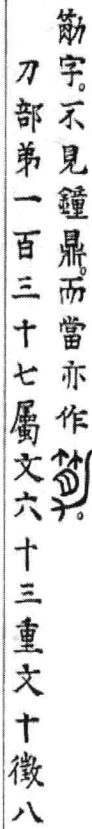 笏字。不見鐘鼎。而當亦作。
刀部弟一百三十七屬文六十三重文十徵八